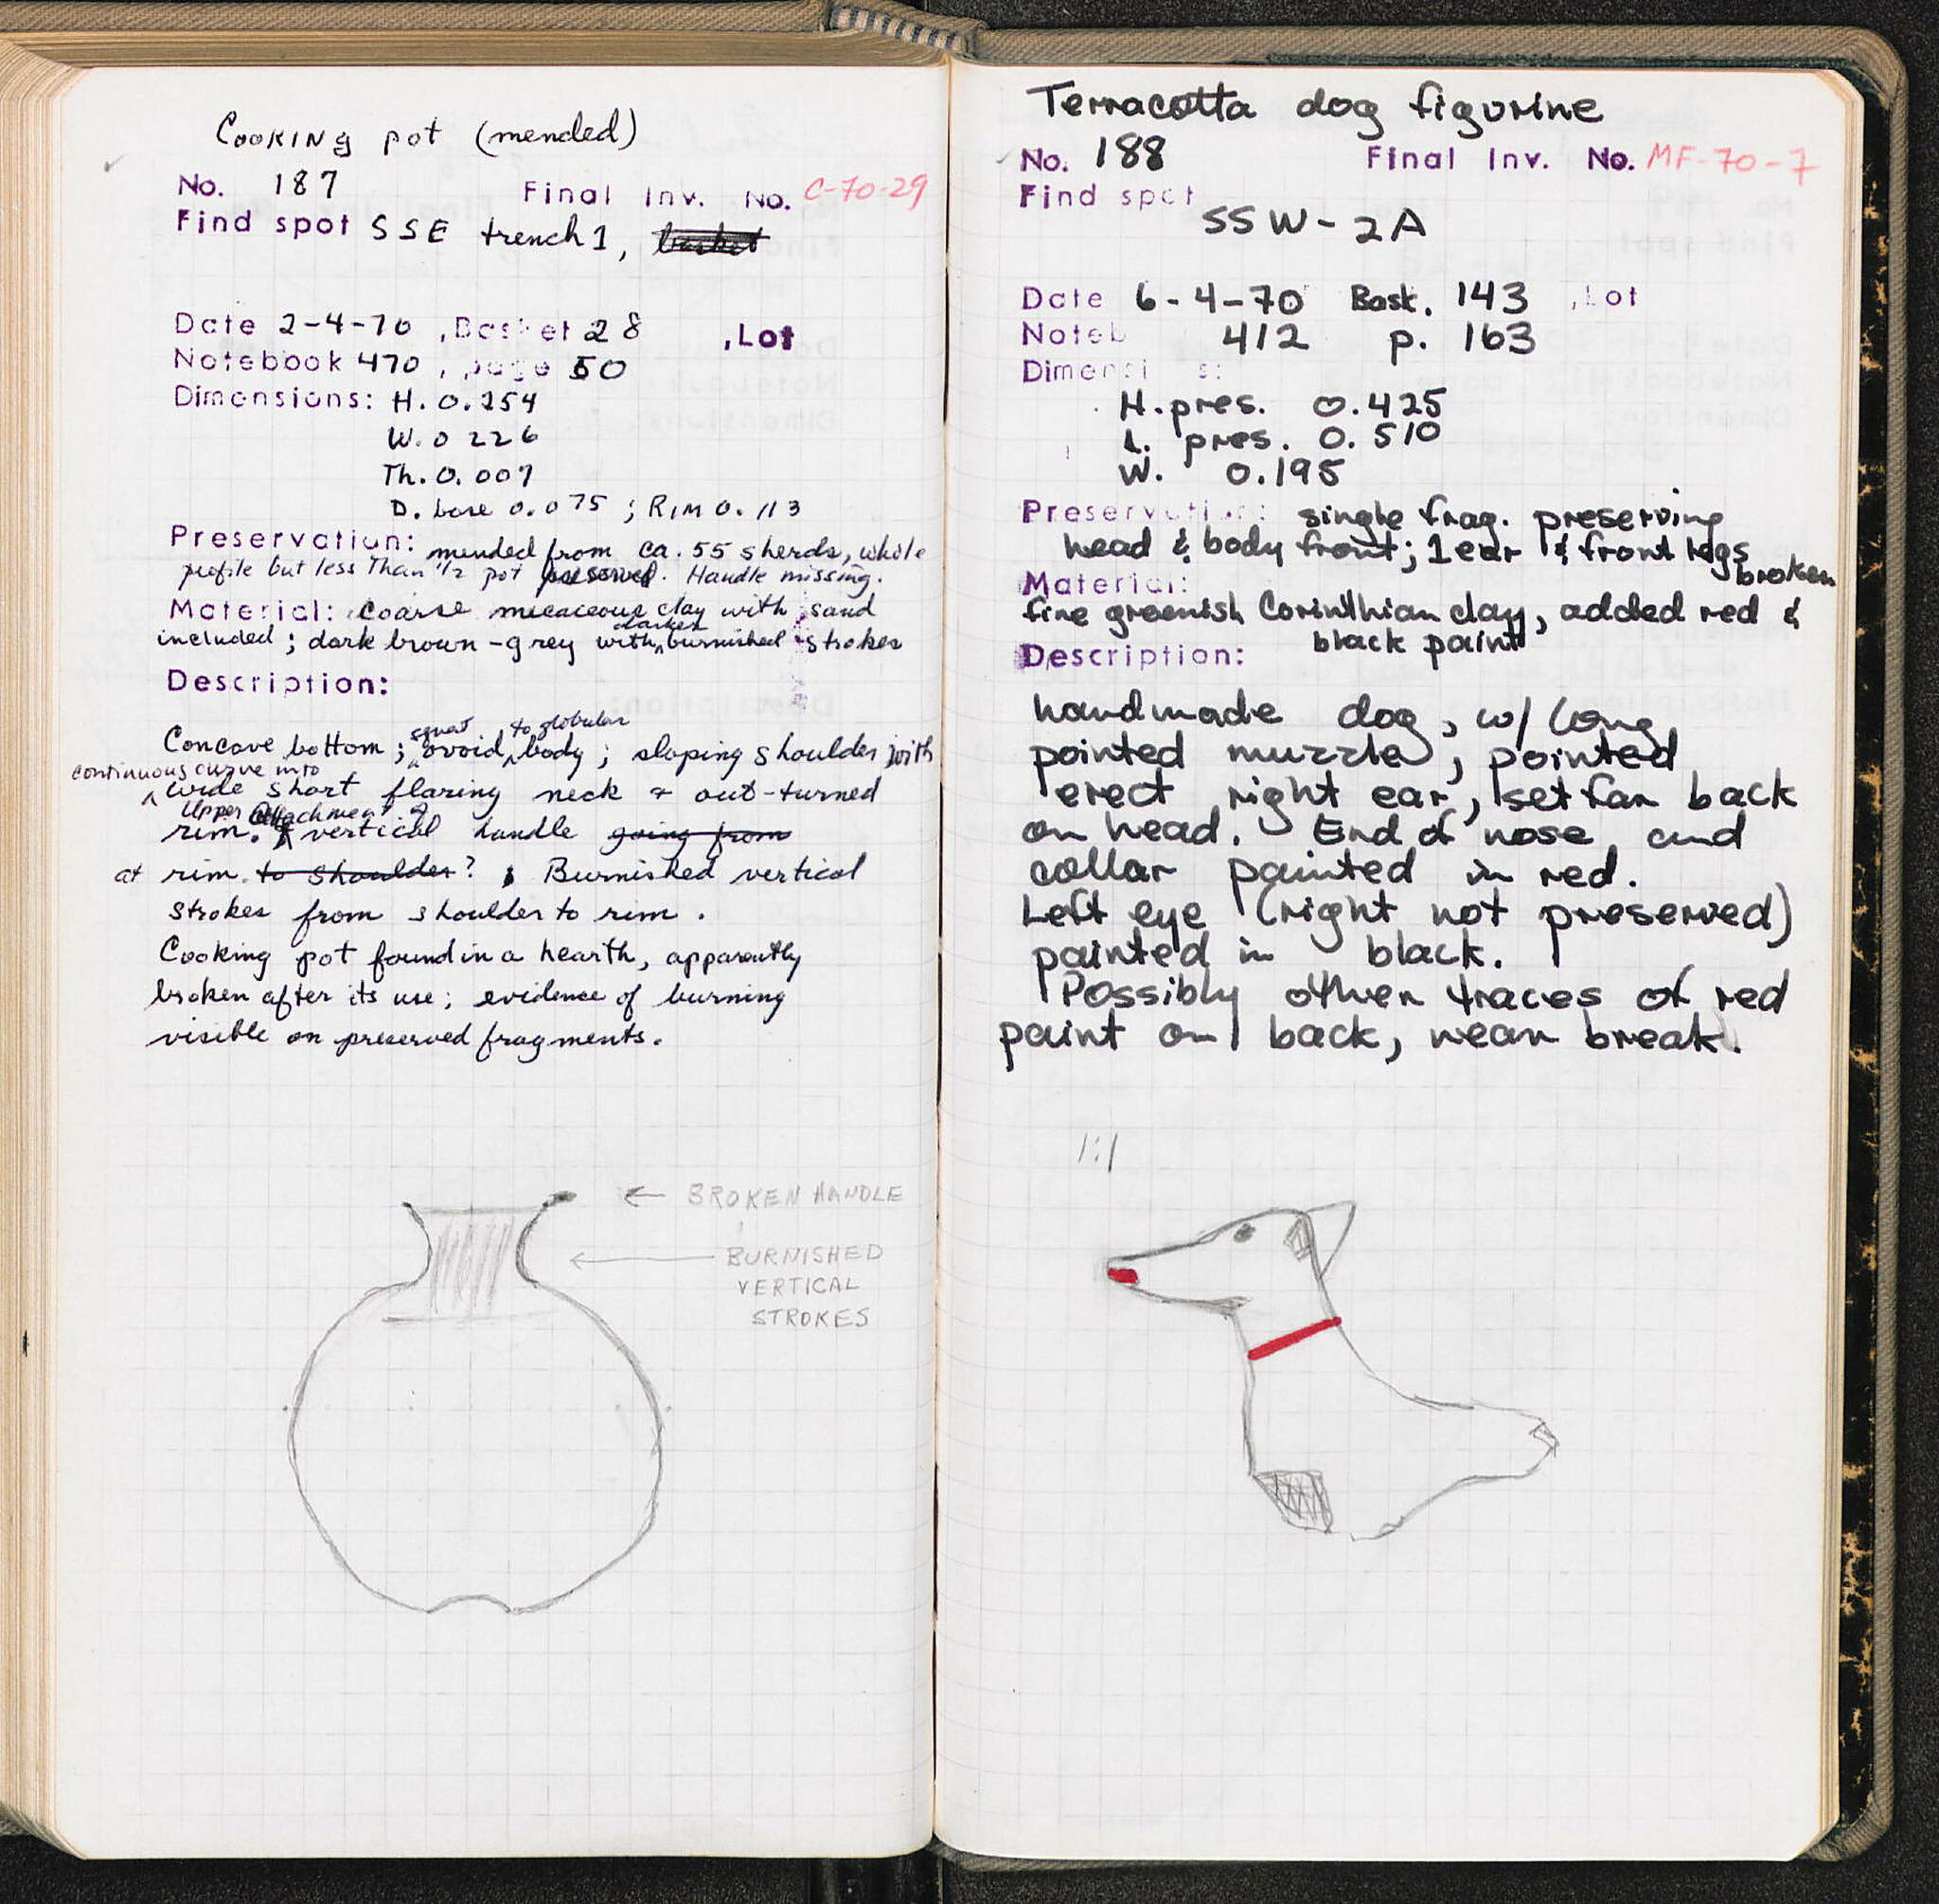 Cooking pot (mended)
No. 187 Final Inv. No. C-70-29
Find spot SSE trench 1, basket
Date 2-4-70 , Basket 28 , Lot
Notebook 470 , page 50
Dimensions: H. 0.254
W. 0 226
Th. 0.007
D. base 0.075 ; Rim 0.113
Preservation: mended from ca. 55 sherds, whole
profile but less than 1/2 pot preserved. Handle missing.
Material: Coarse micaceous clay with sand
included ; dark brown-grey with darker burnished strokes
Description:
Concave bottom ; squat ovoid to globular body ; sloping shoulder with
continuous curve into
wide short flaring neck & out-turned
Upper attachment of
rim. vertical handle going from
at rim to shoulder? ; Burnished vertical
strokes from shoulder to rim .
Cooking pot found in a hearth, apparently
broken after its use ; evidence of burning
visible on preserved fragments.
← BROKEN HANDLE
← BURNISHED
VERTICAL
STROKES
Terracotta dog figurine
No. 188 Final Inv. No. MF-70-7
Find spot
SSW-2A
Date 6-4-70 Bask. 143 , Lot
Noteb 412 p. 163
Dimensi s:
H. pres. 0.425
L. pres. 0.510
W. 0.195
Preservation: single frag. preserving
head & body front; 1 ear & front legs
broken
Material:
fine greenish Corinthian clay, added red &
black paint
Description:
handmade dog, w/ long
pointed muzzle, pointed
erect right ear, set far back
on head. End of nose and
collar painted in red.
Left eye (right not preserved)
painted in black.
Possibly other traces of red
paint on back, near break.
1:1